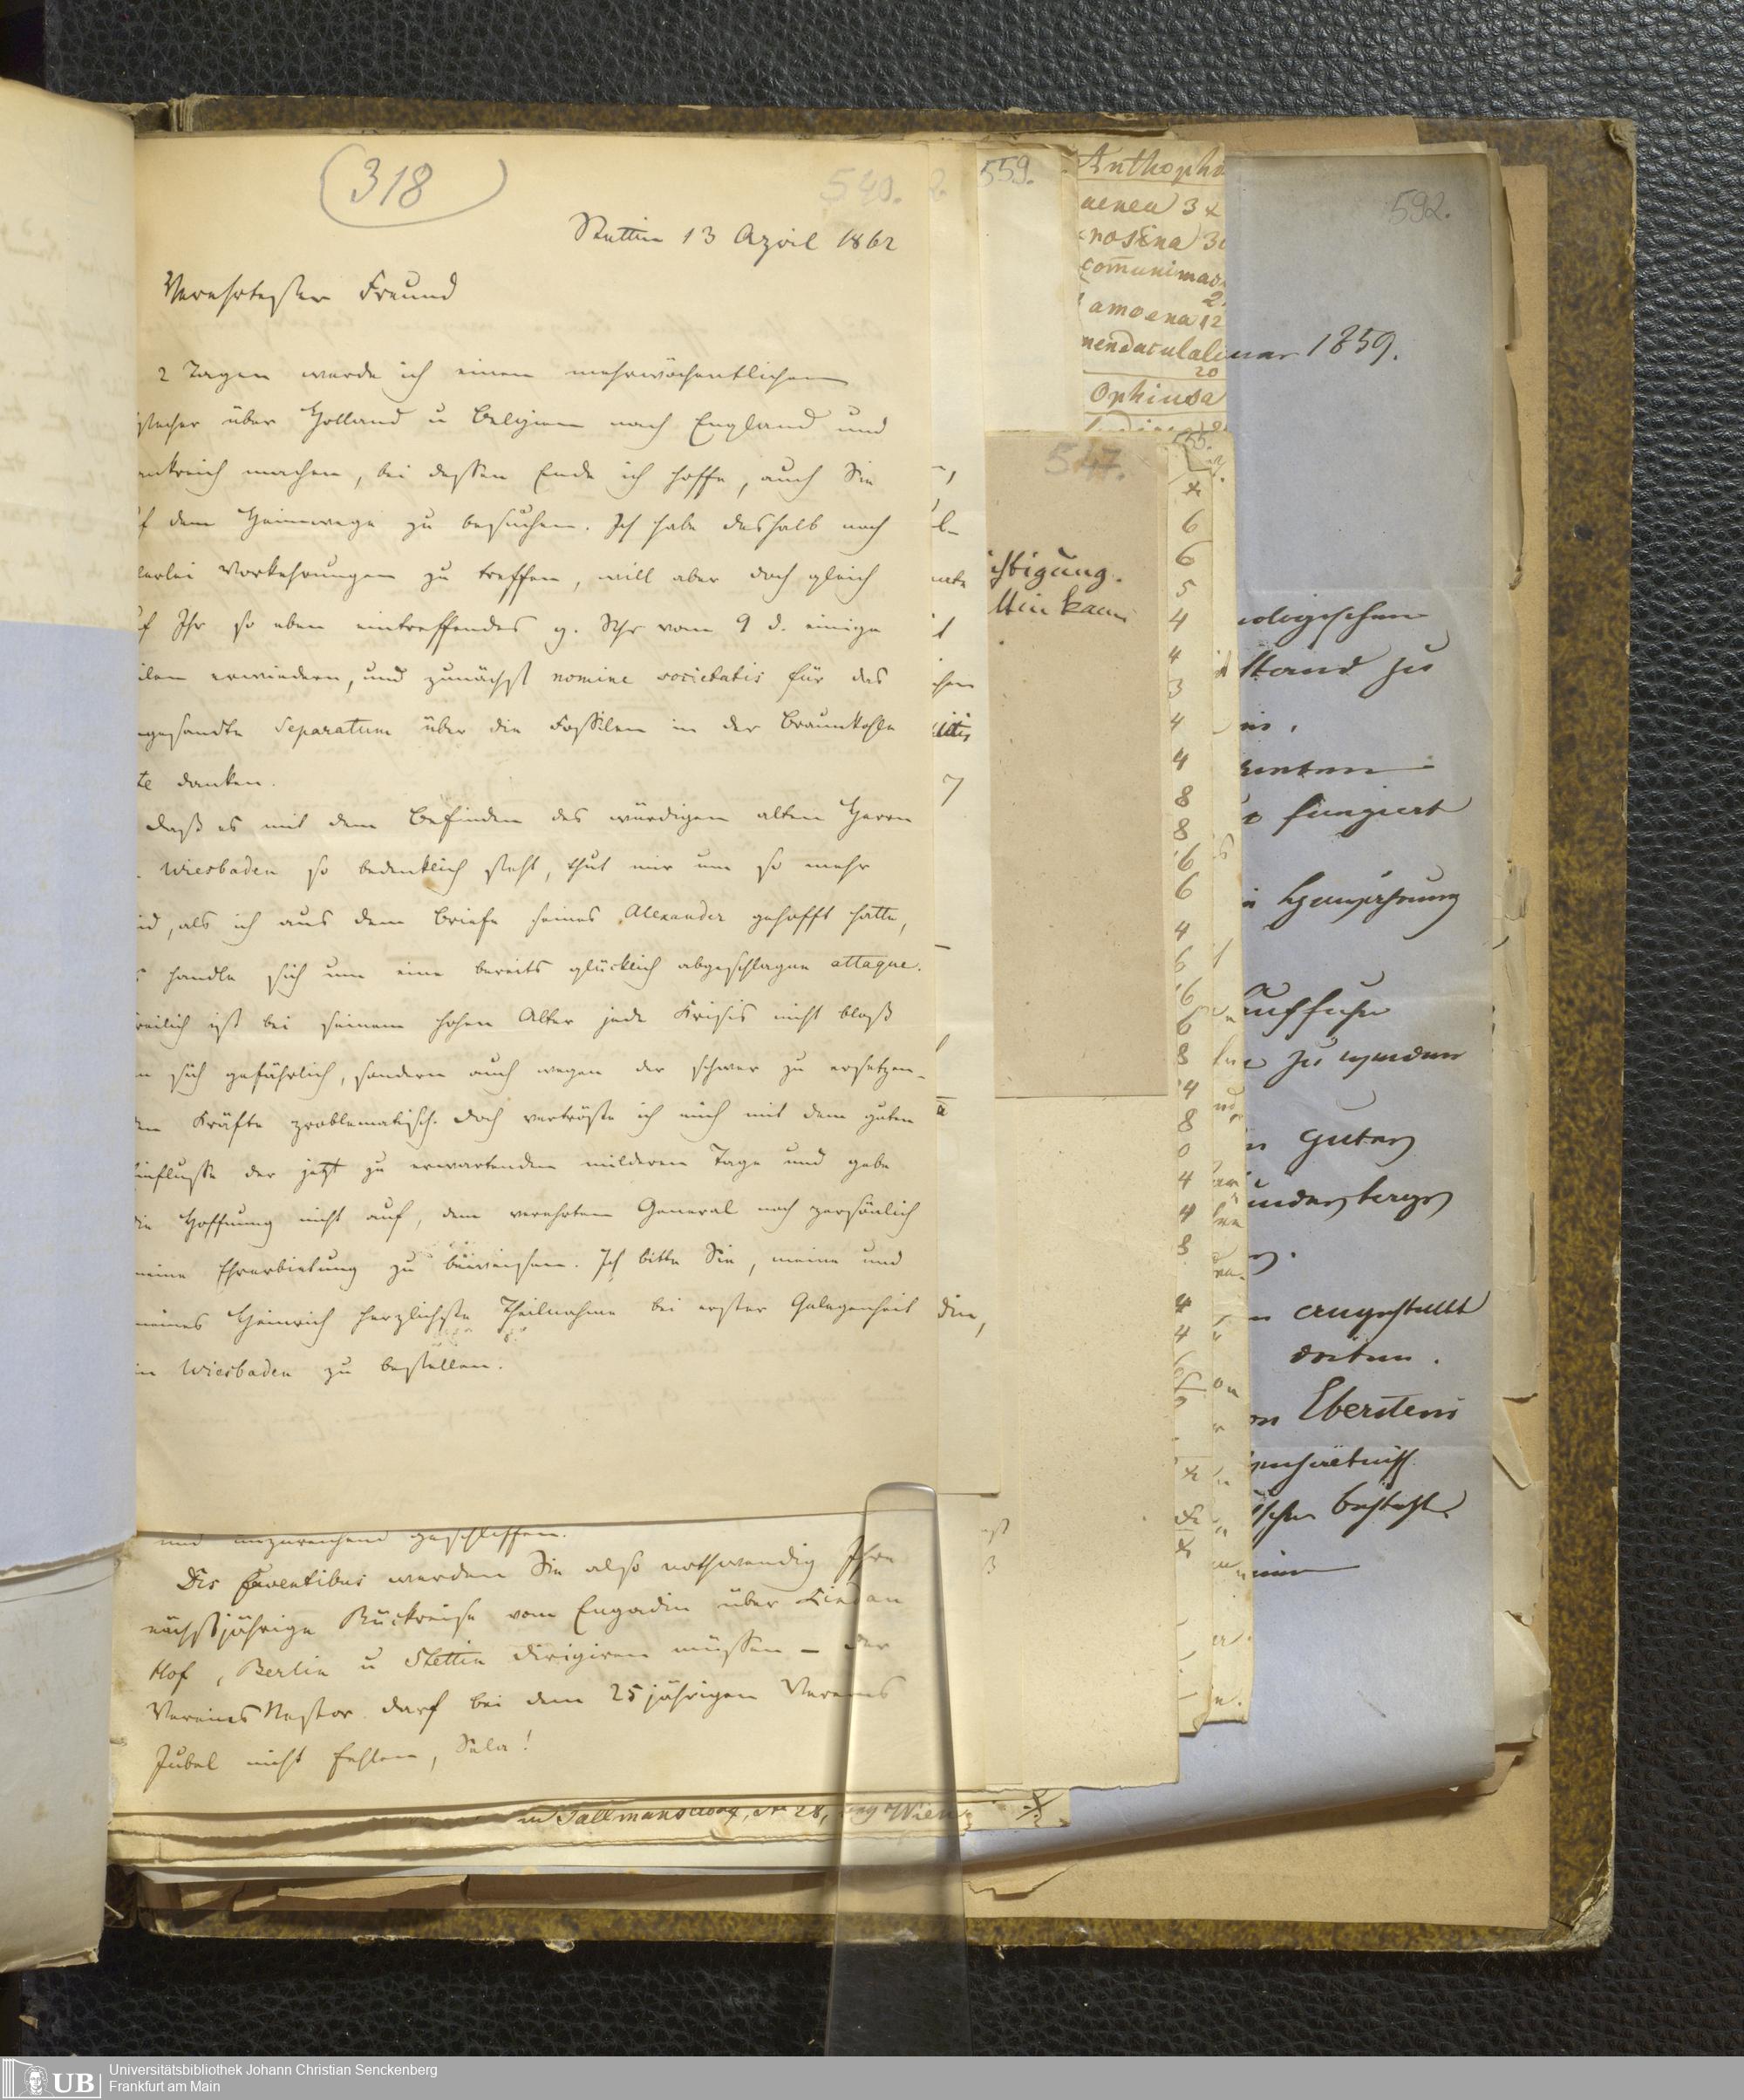 (318)
540.
Stettin 13 April 1862
Verehrtester Freund
2 Tagen werde ich einen mehrwöchentlichen
stecher über Holland u Belgien nach England und
ankreich machen, bei dessen Ende ich hoffe, auch Sie
f dem Heimwege zu besuchen. Ich habe deshalb noch
lerlei Vorkehrungen zu treffen, will aber doch gleich
f Ihr so eben eintreffendes g. Schr vom 9 d. einige
ilen erwiedern, und zunächst nomine societatis für das
ngesandte Separatum über die Fossilen in der Braunkohle
te danken.
Daß es mit dem Befinden des würdigen alten Herrn
Wiesbaden so bedenklich steht, thut mir um so mehr
id, als ich aus dem Briefe seines Alexander gehofft hatte,
s handle sich um eine bereits glücklich abgeschlagne attaque.
reilich ist bei seinem hohen Alter jede Krisis nicht bloß
n sich gefährlich, sondern auch wegen der schwer zu ersetzen-
den Kräfte problematisch. Doch vertröste ich mich mit dem guten
influsse der jetzt zu erwartenden milderen Tage und gebe
die Hoffnung nicht auf, dem verehrten General noch persönlich
meine Ehrerbietung zu beweisen. Ich bitte Sie, meine und
meines Heinrich herzlichste Theilnahme bei erster Gelegenheit
in Wiesbaden zu bestellen.
und unzureichend geschliffen.
Dis faventibus werden Sie also nothwendig Ihre
nächstjährige Rückreise vom Engadin über
Hof, Berlin u Stettin dirigiren müssen – der
Vereins Nestor darf bei dem 25jährigen Vereins
Jubel nicht fehlen, Sela!
28, Wien
559.
Anthopho
aenea 3
rosina 3
comunimac
2
amoena 12
mendaculali
20
Ophiusa
547.
chtigung.
ttin kam
555.
6
6
5
4
4
3
4
4
8
8
6
6
4
6
6
6
8
4
8
0
4
4
8
4
4
592.
uar 1859.
ologischen
stand zu
fungirt
Guten
angestellt
Eberstein
Universitätsbibliothek Johann Christian Senckenberg
Frankfurt am Main
UB